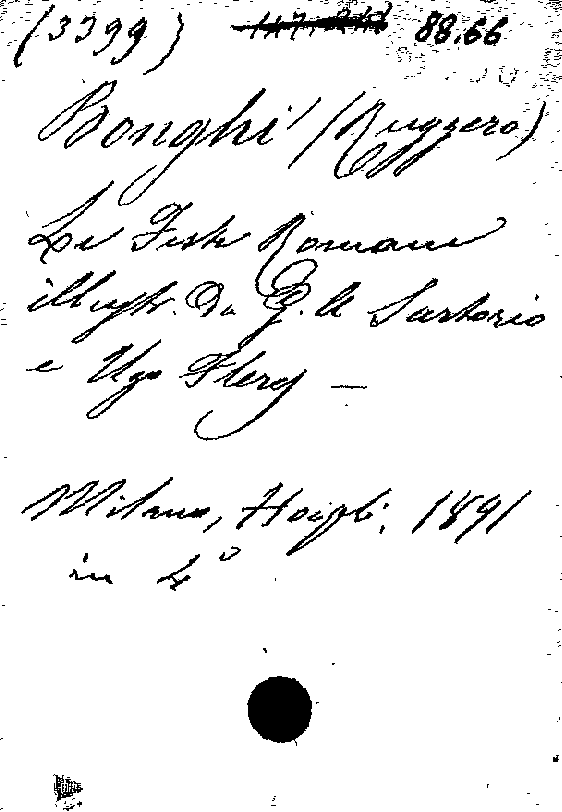 (3399) 88.66
Bonghi (Ruggero)
Le Feste Romane
illustr. da G. A. Sartorio
e Ugo Fleres —
Milano, Hoepli, 1891
in 4°